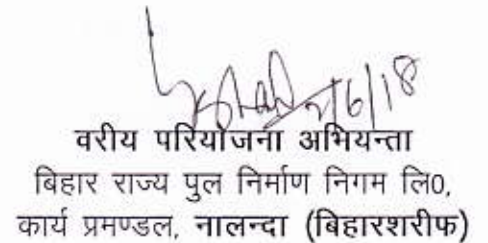 2/6/18
वरीय परियोजना अभियन्ता
बिहार राज्य पुल निर्माण निगम लि0,
कार्य प्रमण्डल, नालन्दा (बिहारशरीफ)